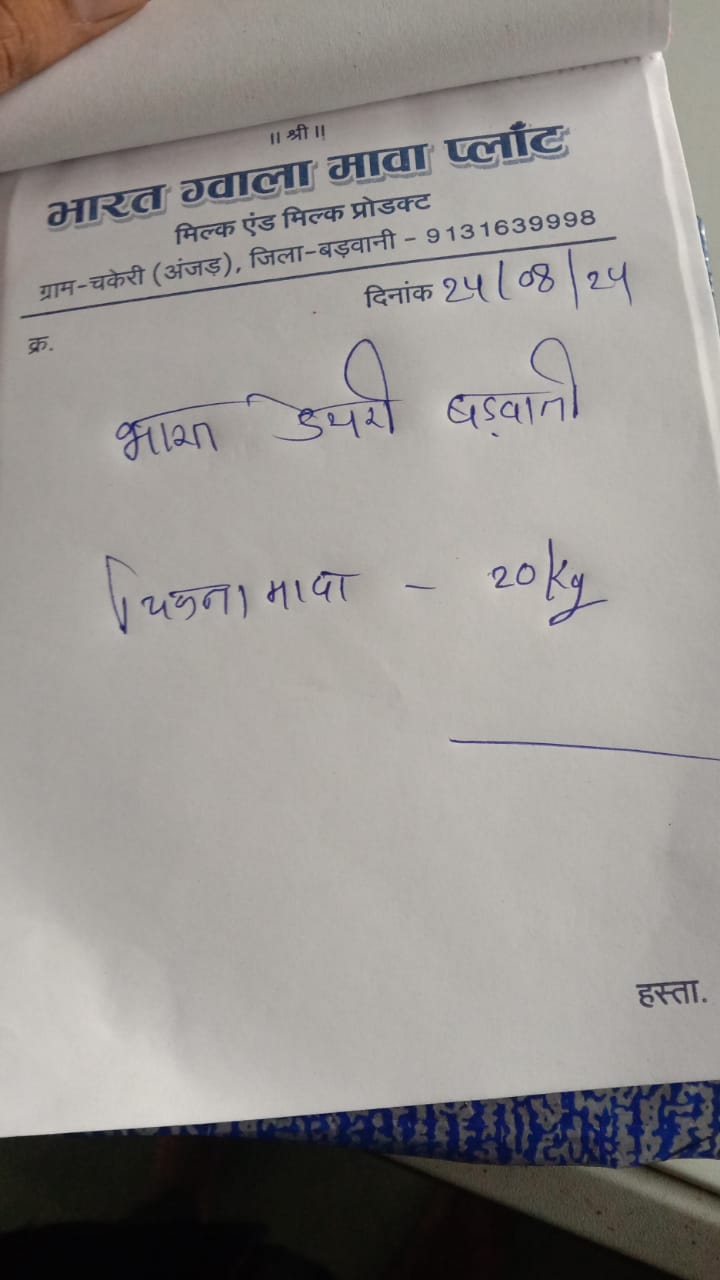 ॥ श्री ॥
भारत ग्वाला मावा प्लाँट
मिल्क एंड मिल्क प्रोडक्ट
ग्राम-चकेरी (अंजड़), जिला-बड़वानी - 9131639998
दिनांक 24/08/24
क्र.
डेयरी बड़वानी
चिकना मावा - 20 kg
हस्ता.